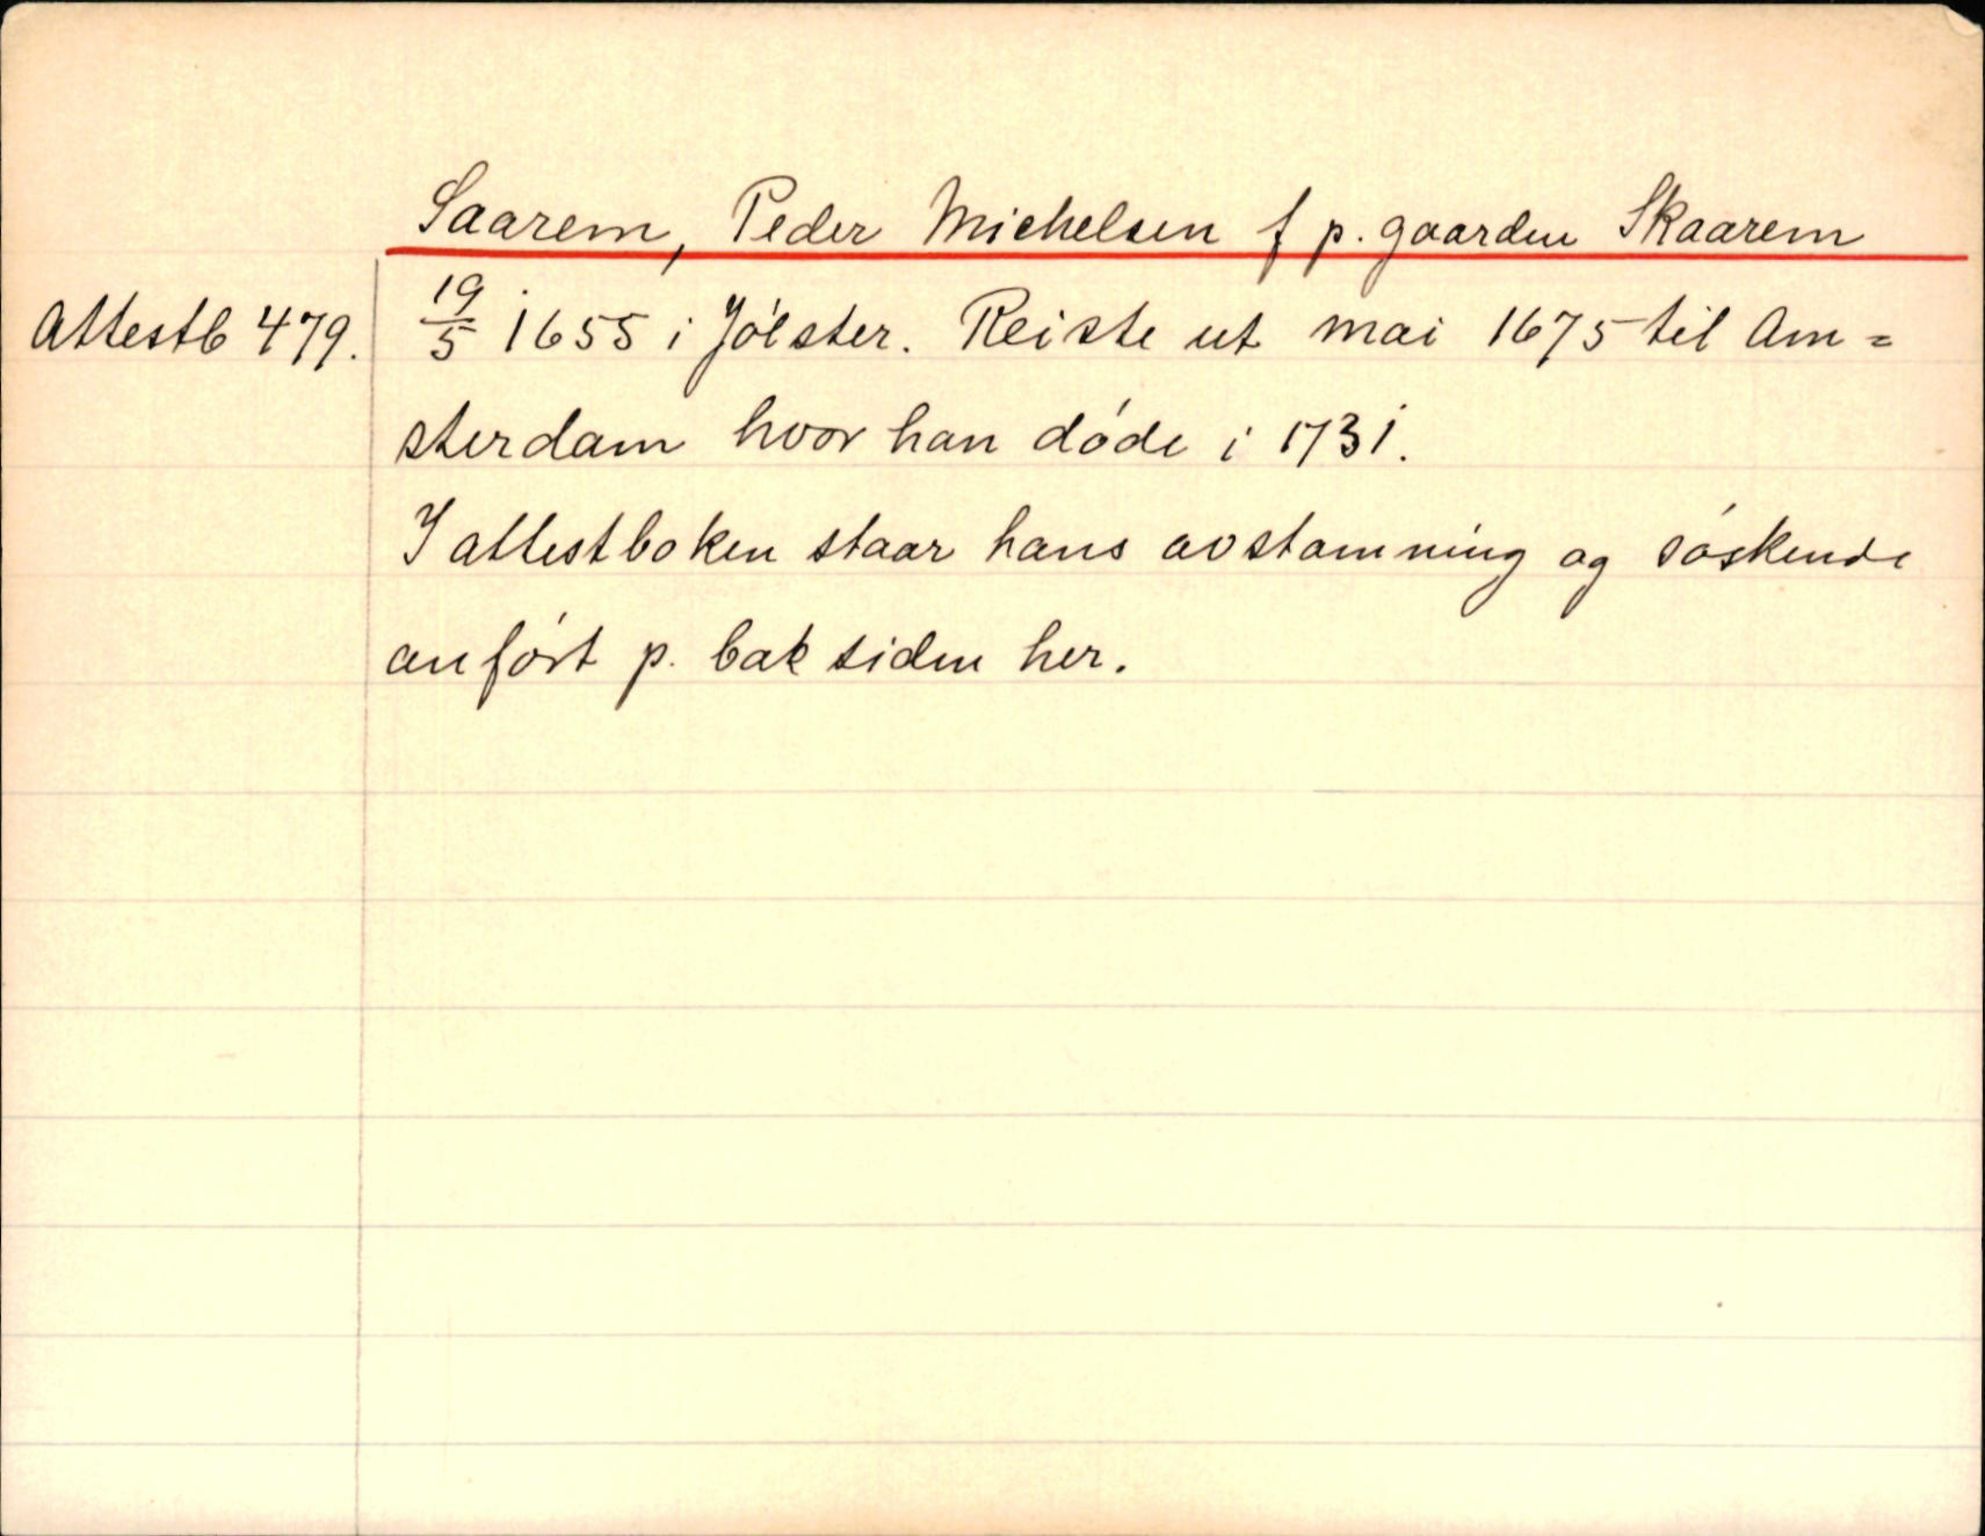 Saarem, Peder Michelsen f p. gaarden Skaarem
Attestb 479.
19/5 1655 i Jölster. Reiste ut mai 1675 til Am=
sterdam hvor han döde i 1731.
I attestboken staar hans avstamning og söskende
anfört p. baksiden her.